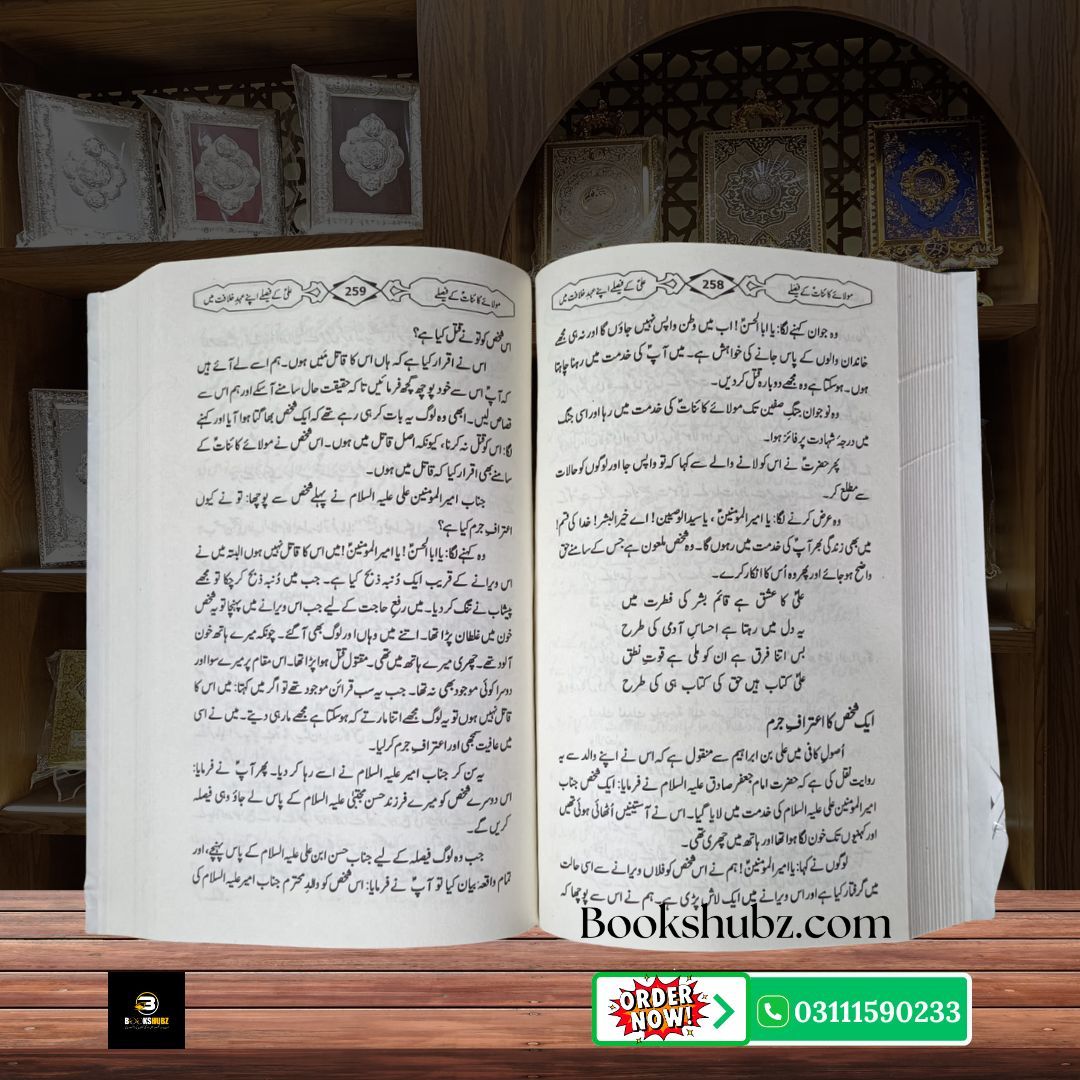 مولائے کائناتؑ کے فیصلے
258
علیؑ کے فیصلے اپنے عہدِ خلافت میں
وہ جوان کہنے لگا: یا ابا الحسنؑ! اب میں وطن واپس نہیں جاؤں گا اور نہ ہی مجھے
خاندان والوں کے پاس جانے کی خواہش ہے۔ میں آپؑ کی خدمت میں رہنا چاہتا
ہوں۔ ہوسکتا ہے وہ مجھے دوبارہ قتل کر دیں۔
وہ نوجوان جنگِ صفین تک مولائے کائناتؑ کی خدمت میں رہا اور اسی جنگ
میں درجۂ شہادت پر فائز ہوا۔
پھر حضرتؑ نے اس کو لانے والے سے کہا کہ تو واپس جا اور لوگوں کو حالات
سے مطلع کر۔
وہ عرض کرنے لگا: یا امیر المومنینؑ، یا سید الوصیین! اے خیر البشر! خدا کی قسم!
میں بھی زندگی بھر آپؑ کی خدمت میں رہوں گا۔ وہ شخص ملعون ہے جس کے سامنے حق
واضح ہو جائے اور پھر وہ اُس کا انکار کرے۔
علیؑ کا عشق ہے قائم بشر کی فطرت میں
یہ دل میں رہتا ہے احساسِ آدمی کی طرح
بس اتنا فرق ہے ان کو ملی ہے قوتِ نطق
علیؑ کتاب ہیں حق کی کتاب ہی کی طرح
ایک شخص کا اعترافِ جرم
اُصولِ کافی میں علی بن ابراہیم سے منقول ہے کہ اس نے اپنے والد سے یہ
روایت نقل کی ہے کہ حضرت امام جعفر صادق علیہ السلام نے فرمایا: ایک شخص جناب
امیر المومنین علی علیہ السلام کی خدمت میں لایا گیا۔ اس نے آستینیں اُٹھائی ہوئی تھیں
اور کہنیوں تک خون لگا ہوا تھا اور ہاتھ میں چھری تھی۔
لوگوں نے کہا: یا امیر المومنینؑ! ہم نے اس شخص کو فلاں ویرانے سے اسی حالت
میں گرفتار کیا ہے اور اس ویرانے میں ایک لاش پڑی ہے۔ ہم نے اس سے پوچھا کہ
مولائے کائناتؑ کے فیصلے
259
علیؑ کے فیصلے اپنے عہدِ خلافت میں
اس شخص کو تو نے قتل کیا ہے؟
اس نے اقرار کیا ہے کہ ہاں اس کا قاتل مَیں ہوں۔ ہم اسے لے آئے ہیں
کہ آپؑ اس سے خود پوچھ گچھ فرمائیں تاکہ حقیقتِ حال سامنے آسکے اور ہم اس سے
قصاص لیں۔ ابھی وہ لوگ یہ بات کر ہی رہے تھے کہ ایک شخص بھاگتا ہوا آیا اور کہنے
لگا: اس کو قتل نہ کرنا، کیونکہ اصل قاتل میں ہوں۔ اس شخص نے مولائے کائناتؑ کے
سامنے بھی اقرار کیا کہ قاتل میں ہوں۔
جناب امیر المومنین علی علیہ السلام نے پہلے شخص سے پوچھا: تو نے کیوں
اعترافِ جرم کیا ہے؟
وہ کہنے لگا: یا ابا الحسنؑ! یا امیر المومنینؑ! میں اس کا قاتل نہیں ہوں البتہ میں نے
اس ویرانے کے قریب ایک دُنبہ ذبح کیا ہے۔ جب میں دُنبہ ذبح کر چکا تو مجھے
پیشاب نے تنگ کر دیا۔ میں رفعِ حاجت کے لیے جب اس ویرانے میں پہنچا تو یہ شخص
خون میں غلطان پڑا تھا۔ اتنے میں وہاں اور لوگ بھی آگئے۔ چونکہ میرے ہاتھ خون
آلود تھے۔ چھری میرے ہاتھ میں تھی۔ مقتول قتل ہوا پڑا تھا۔ اس مقام پر میرے سوا اور
دوسرا کوئی موجود بھی نہ تھا۔ جب یہ سب قرائن موجود تھے تو اگر میں کہتا: میں اس کا
قاتل نہیں ہوں تو یہ لوگ مجھے اتنا مارتے کہ ہوسکتا ہے مجھے مار ہی دیتے۔ میں نے اسی
میں عافیت سمجھی اور اعترافِ جرم کر لیا۔
یہ سن کر جناب امیر علیہ السلام نے اسے رہا کر دیا۔ پھر آپؑ نے فرمایا:
اس دوسرے شخص کو میرے فرزند حسن مجتبیٰ علیہ السلام کے پاس لے جاؤ وہی فیصلہ
کریں گے۔
جب وہ لوگ فیصلہ کے لیے جناب حسن ابن علی علیہ السلام کے پاس پہنچے، اور
تمام واقعہ بیان کیا تو آپؑ نے فرمایا: اس شخص کو والدِ محترم جناب امیر علیہ السلام کی
Bookshubz.com
BOOKSHUBZ
ORDER NOW!
03111590233